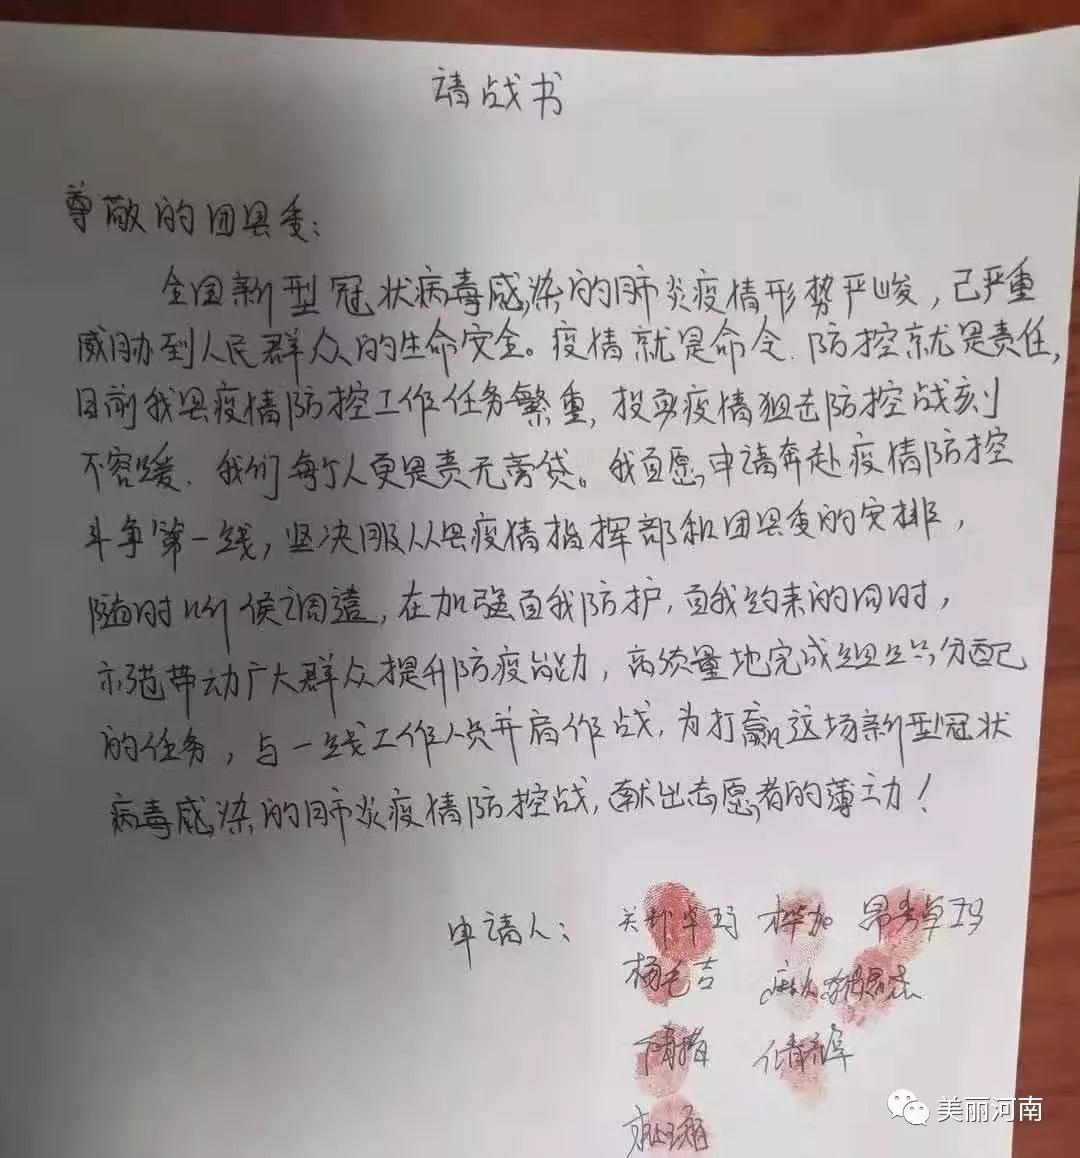 请战书
尊敬的团县委：
全国新型冠状病毒感染的肺炎疫情形势严峻，已严重
威胁到人民群众的生命安全。疫情就是命令.防控就是责任，
目前我县疫情防控工作任务繁重，投身疫情狙击防控战刻
不容缓.我们每个人更是责无旁贷。我自愿申请奔赴疫情防控
斗争第一线，坚决服从县疫情指挥部和团县委的安排，
随时听候调遣，在加强自我防护，自我约束的同时，
示范带动广大群众提升防疫能力，高质量地完成组织分配
的任务，与一线工作人员并肩作战，为打赢这场新型冠状
病毒感染的肺炎疫情防控战，献出志愿者的薄立力！
申请人：关却卓玛 卓玛
杨毛吉
美丽河南